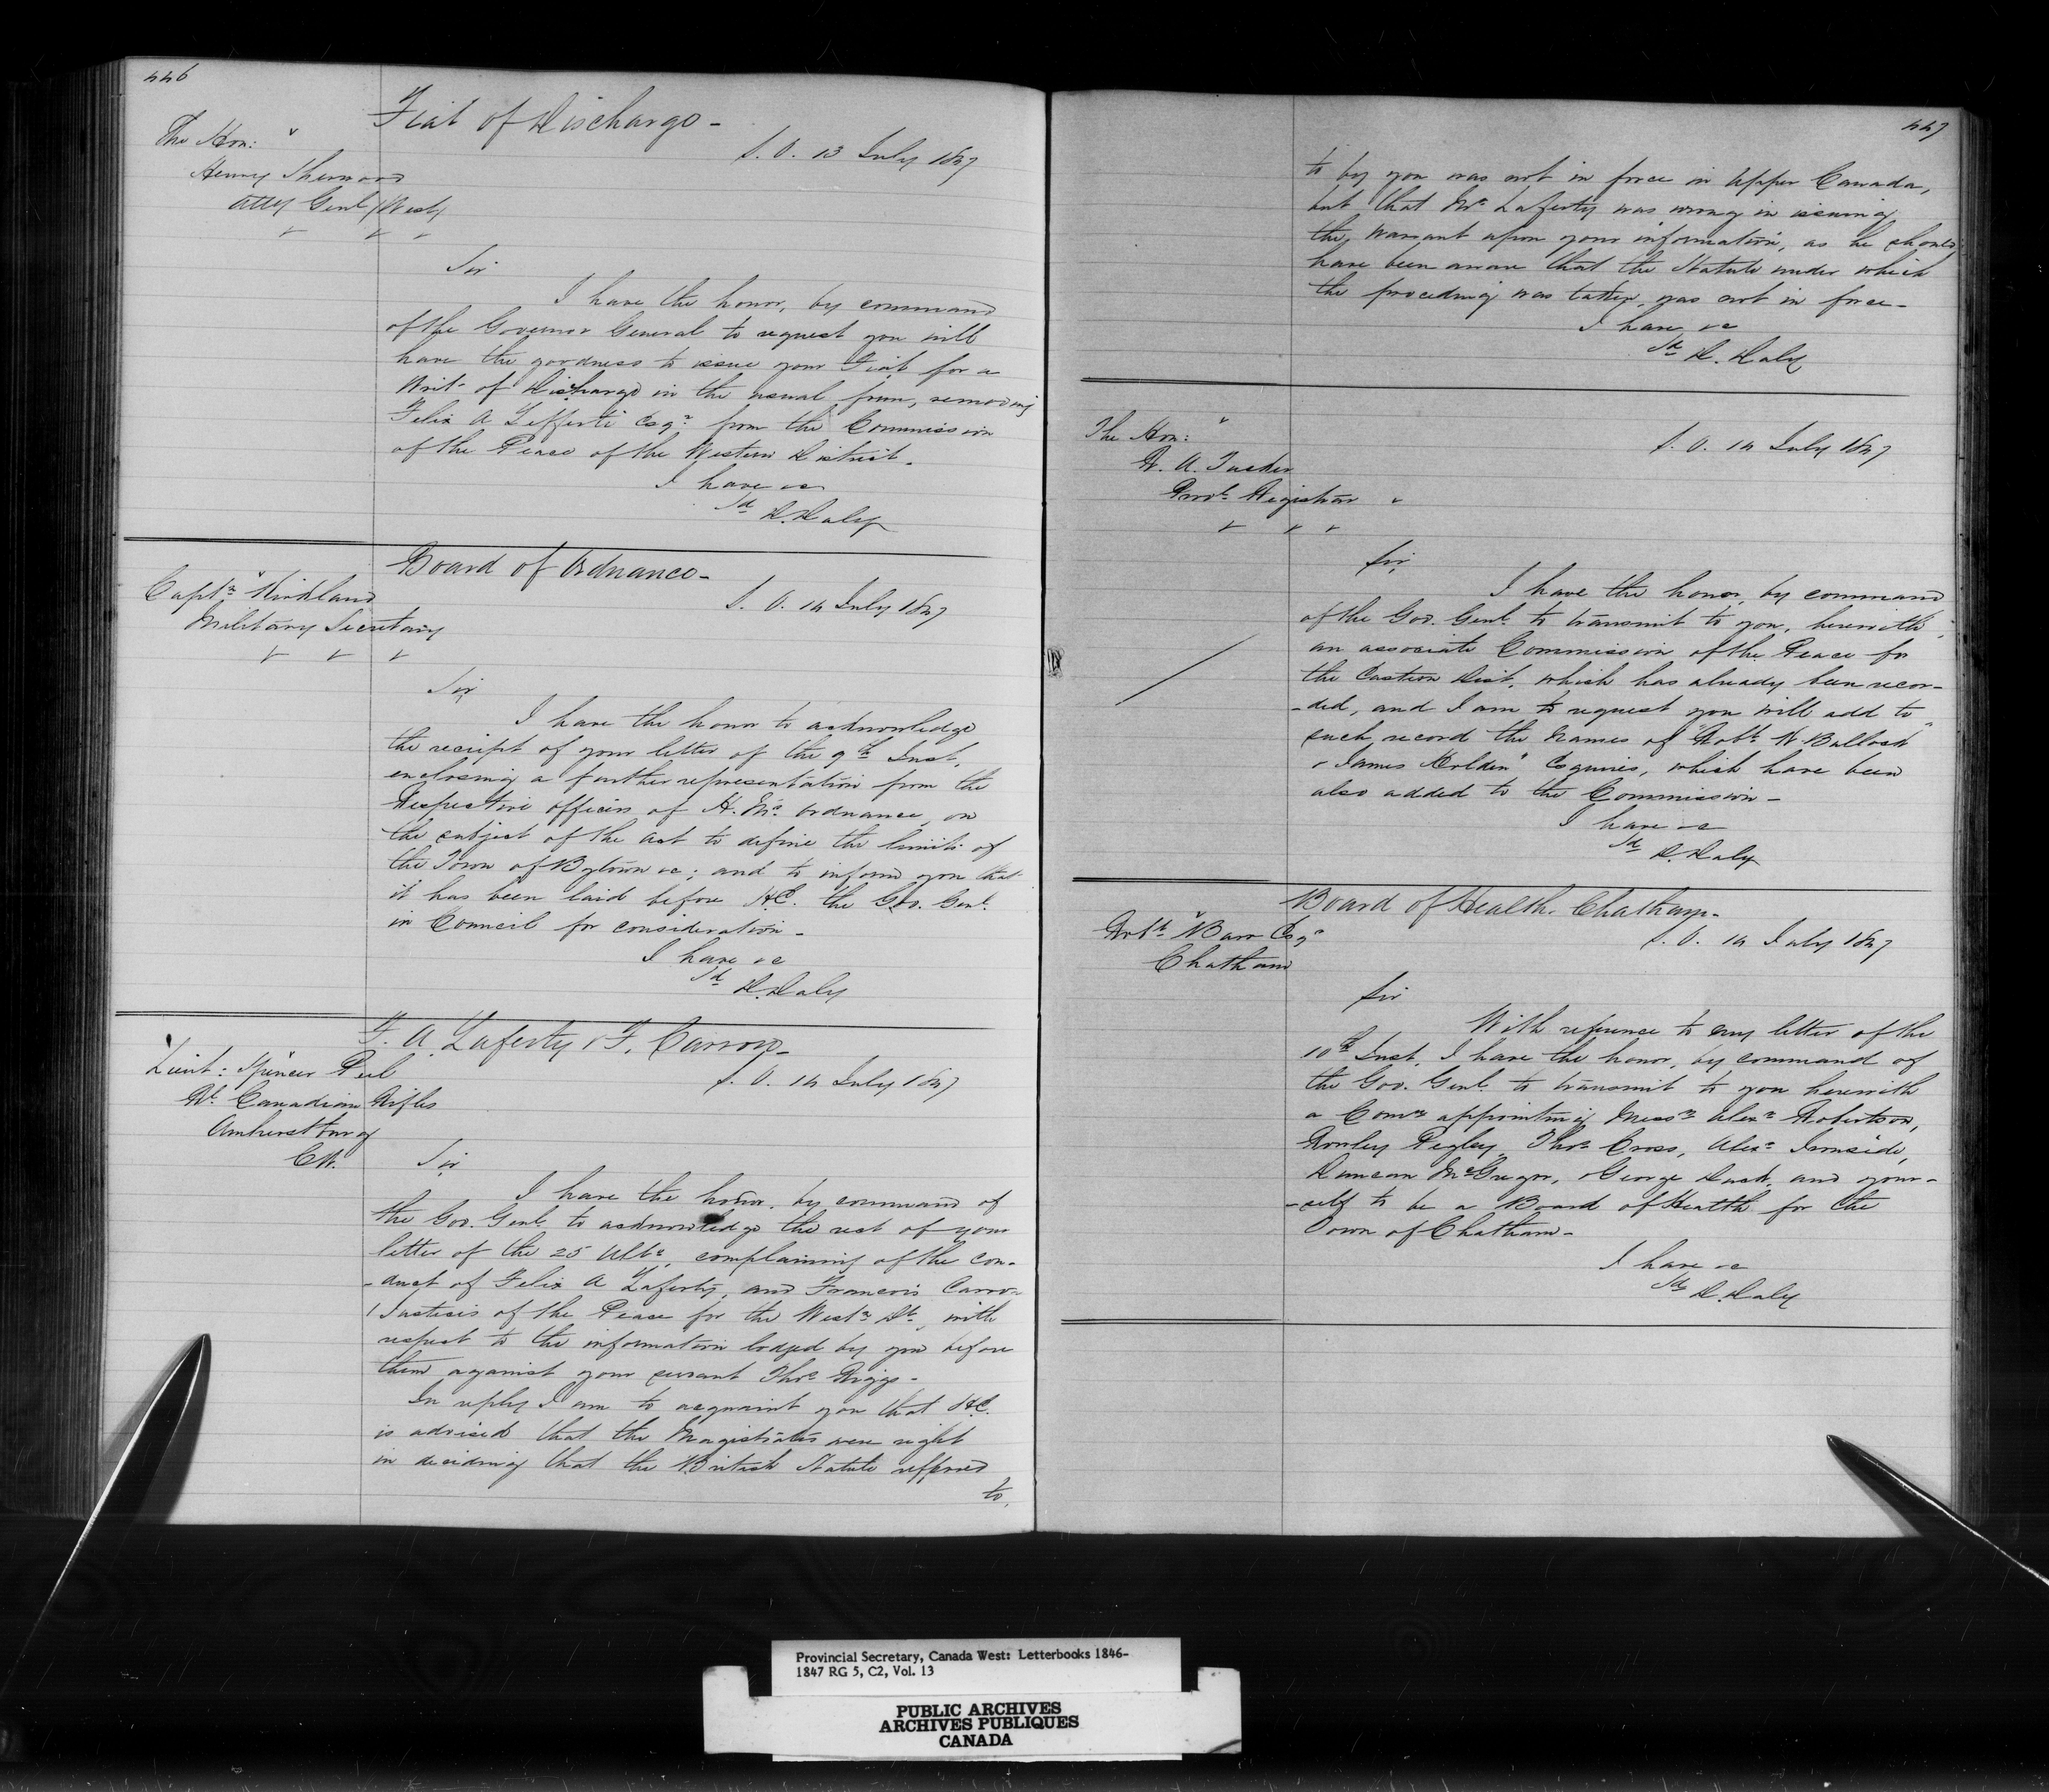 446
Fiat of Discharge -
The Hon:
Henry Sherwood
Atty Genl (West)
S. O. 13 July 1847
Sir
I have the honor, by command
of the Governor General to request you will
have the goodness to issue your Fiat for a
Writ of Discharge in the usual form, removing
Felix A Lafferte Esqr from the Commission
of the Peace of the Western District.
I have &c
Sd D. Daly
Board of Ordnance -
Captn Kirkland
Military Secretary
S. O. 14 July 1847
Sir
I have the honor to acknowledge
the receipt of your letter of the 9th Inst,
enclosing a further representation from the
Respective officers of H. M's Ordnance, on
the subject of the Act to define the limits of
the Town of Bytown &c; and to inform you that
it has been laid before H.E. the Gov. Genl.
in Council for consideration -
I have &c
Sd D. Daly
F. A. Laferty & F. Carron -
Lieut: Spencer Peel
Rl Canadian Rifles
Amherstburg
C.W.
S. O. 14 July 1847
Sir
I have the honor, by command of
the Gov. Genl. to acknowledge the rect of your
letter of the 25 Ulto, complaining of the con-
-duct of Felix A Laferty, and Francois Carron
Justices of the Peace for the Westn Dt, with
respect to the information lodged by you before
them against your servant Thos Riggs -
In reply I am to acquaint you that H.E.
is advised that the Magistrates were right
in deciding that the British Statute referred
to,
447
to by you was not in force in Upper Canada,
but that Mr Laferty was wrong in issuing
the Warrant upon your information, as he should
have been aware that the Statute under which
the proceeding was taken, was not in force -
I have &c
Sd D. Daly
The Hon:
R. A. Tucker
Provl Registrar
S. O. 14 July 1847
Sir,
I have the honor, by command
of the Gov. Genl. to transmit to you, herewith,
an associate Commission of the Peace for
the Eastern Dist, which has already been recor-
-ded, and I am to request you will add to
such record the names of "Robt W. Bullock
& James Holden" Esquires, which have been
also added to the Commission -
I have &c
Sd D. Daly
Board of Health. Chatham -
Robt Barr Esqr
Chatham
S. O. 14 July 1847
Sir
With reference to my letter of the
10th Inst, I have the honor, by command of
the Gov. Genl to transmit to you herewith
a Comn appointing Messrs Alexr Robertson,
Rowley Pegley, Thos Cross, Alexr Ironside,
Duncan McGregor, George Duck, and your-
-self to be a Board of Health for the
Town of Chatham -
I have &c
Sd D. Daly
Provincial Secretary, Canada West: Letterbooks 1846-
1847 RG 5, C2, Vol. 13
PUBLIC ARCHIVES
ARCHIVES PUBLIQUES
CANADA